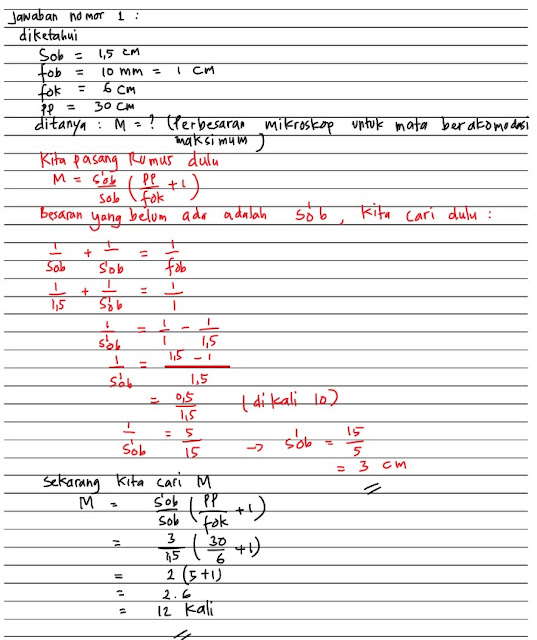 Jawaban nomor 1 :
diketahui
Sob = 1,5 cm
fob = 10 mm = 1 cm
fok = 6 cm
PP = 30 cm
ditanya : M = ? (Perbesaran mikroskop untuk mata berakomodasi maksimum)
Kita pasang Rumus dulu
M = s'ob/sob (PP/fok + 1)
Besaran yang belum ada adalah s'ob, kita cari dulu :
1/sob + 1/s'ob = 1/fob
1/1,5 + 1/s'ob = 1/1
1/s'ob = 1/1 - 1/1,5
1/s'ob = 1,5 - 1/1,5
= 0,5/1,5 (dikali 10)
1/s'ob = 5/15 → s'ob = 15/5
= 3 cm
Sekarang kita cari M
M = s'ob/sob (PP/fok + 1)
= 3/1,5 (30/6 + 1)
= 2 (5+1)
= 2.6
= 12 kali